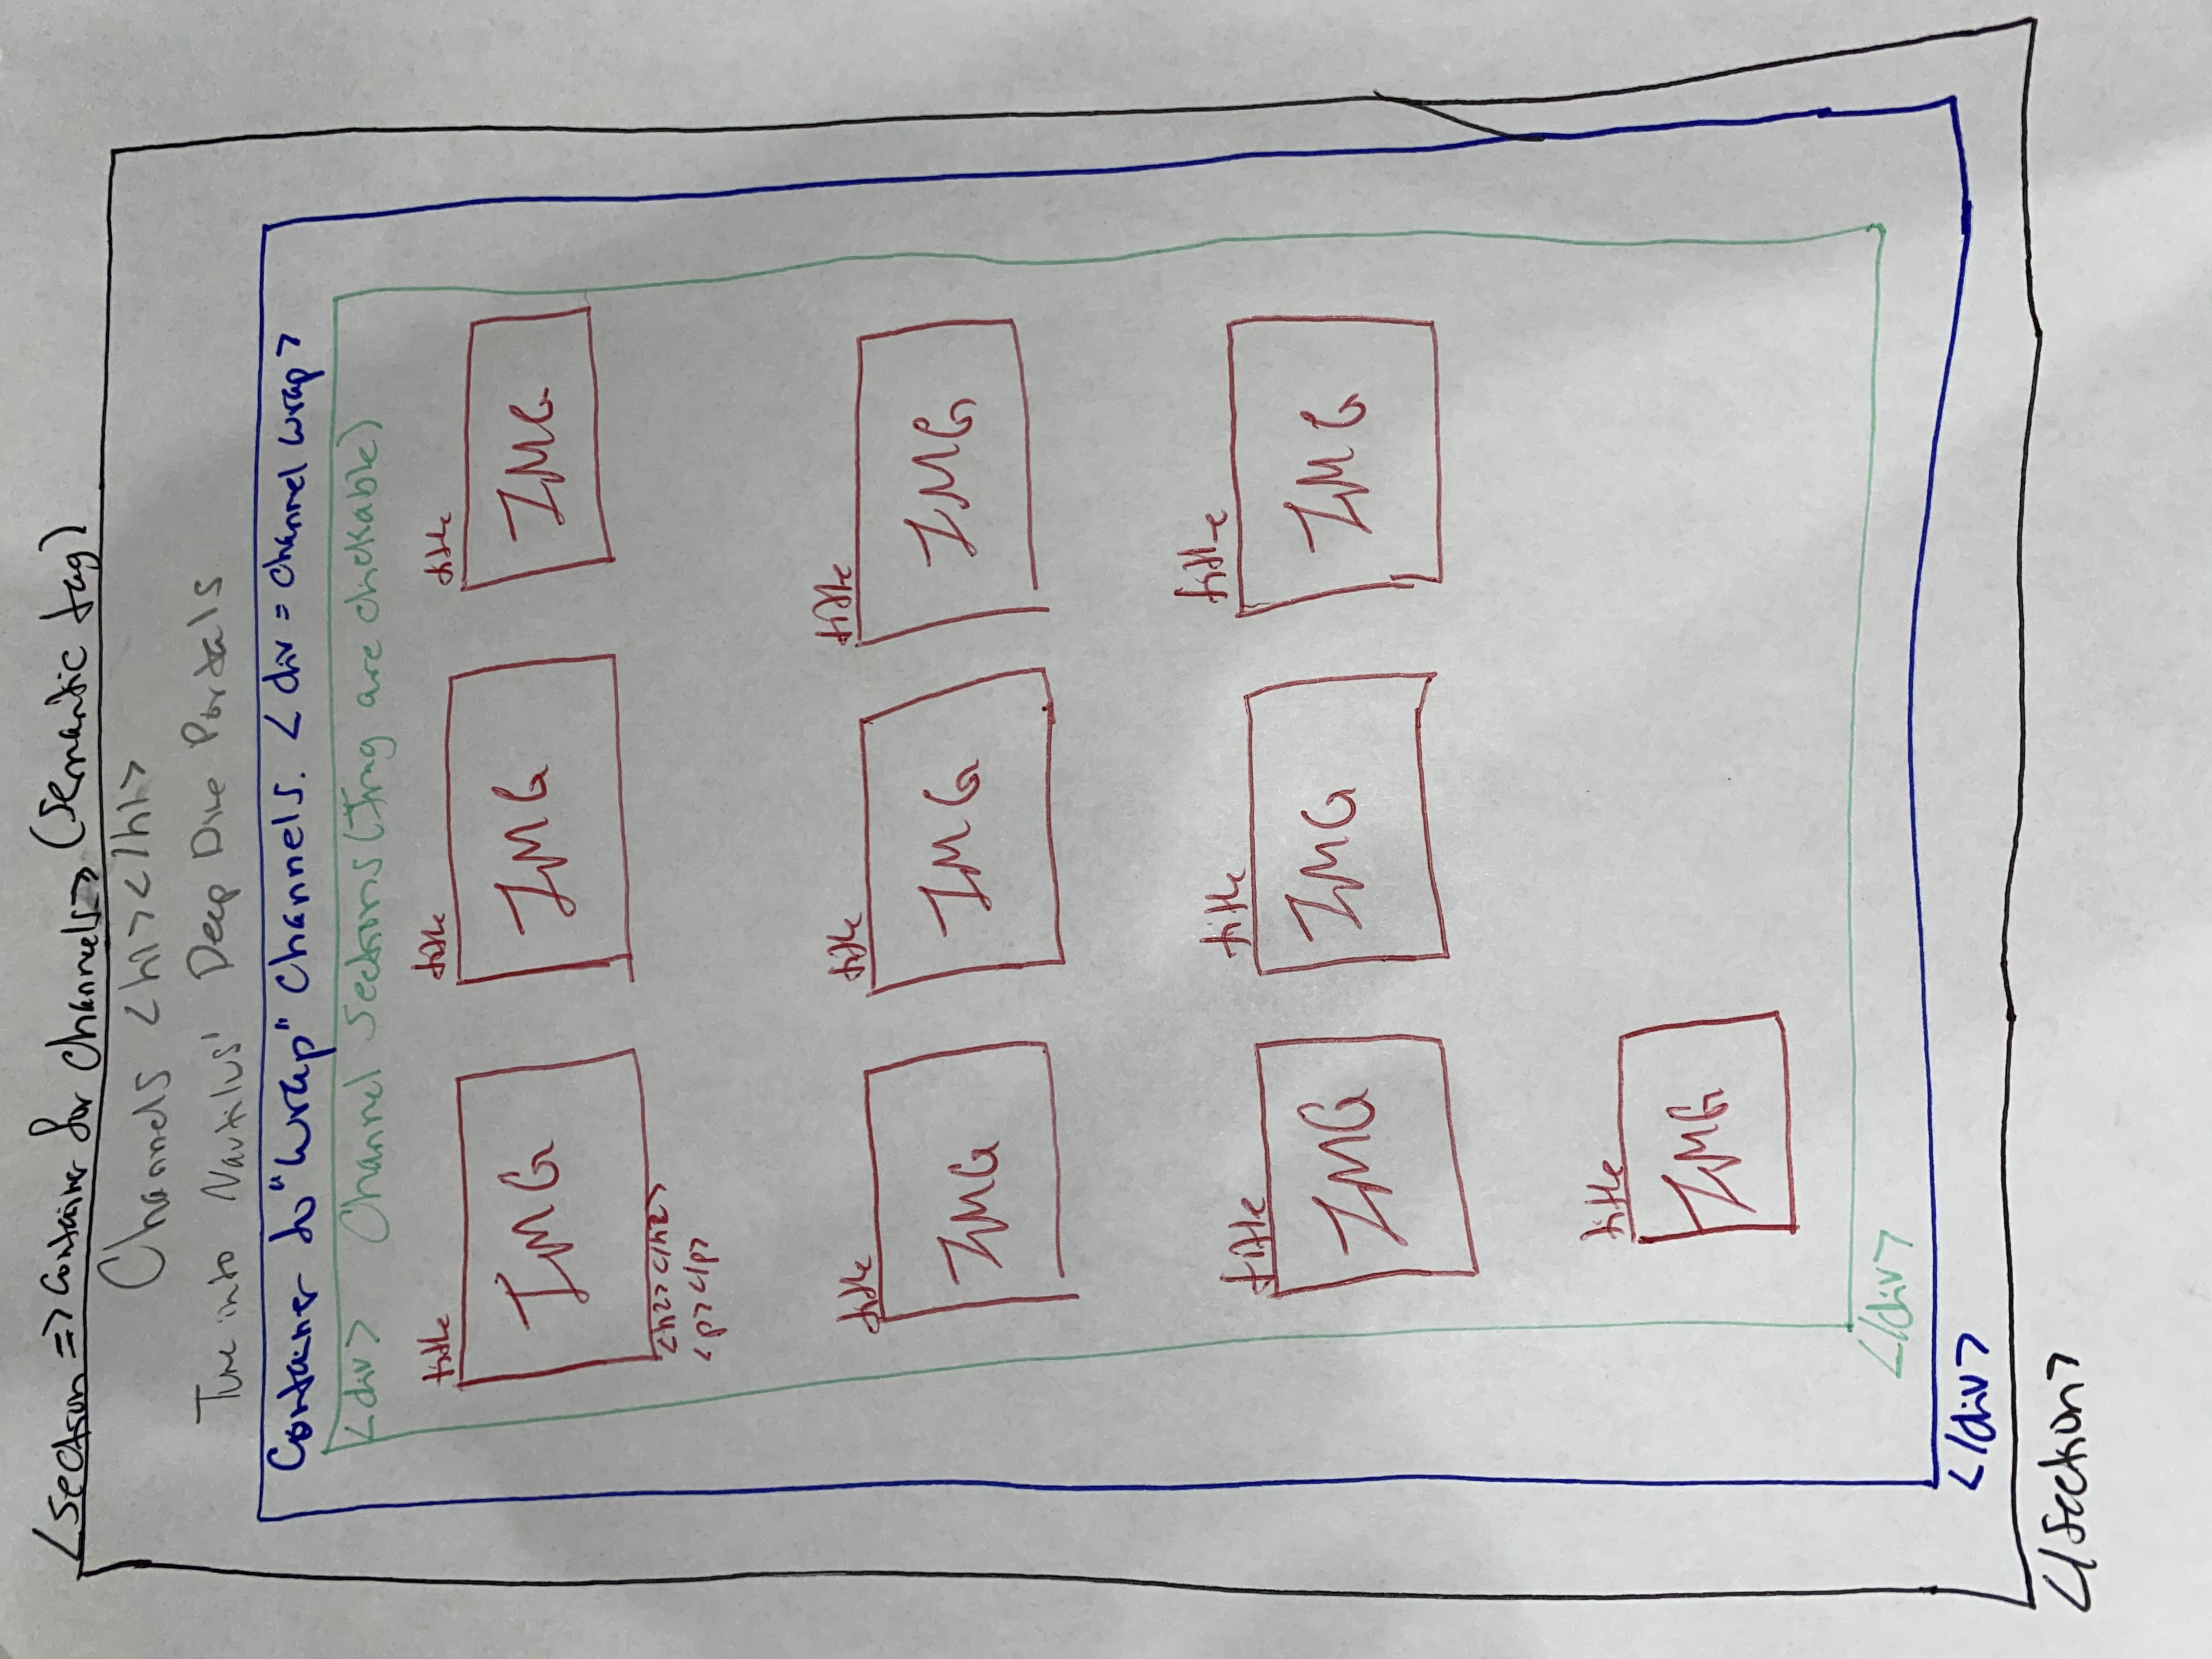 <section => Container for Channels => (Semantic tag)
Channels <h1></h1>
Tune into Nautilus' Deep Dive Portals
Container to "Wrap" Channels. <div = channel wrap>
<div> Channel Sections (Img are clickable)
title title title
IMG IMG IMG
<h2></h2>
<p></p>
title title title
IMG IMG IMG
title title title
IMG IMG IMG
title
IMG
</div>
</div>
</section>